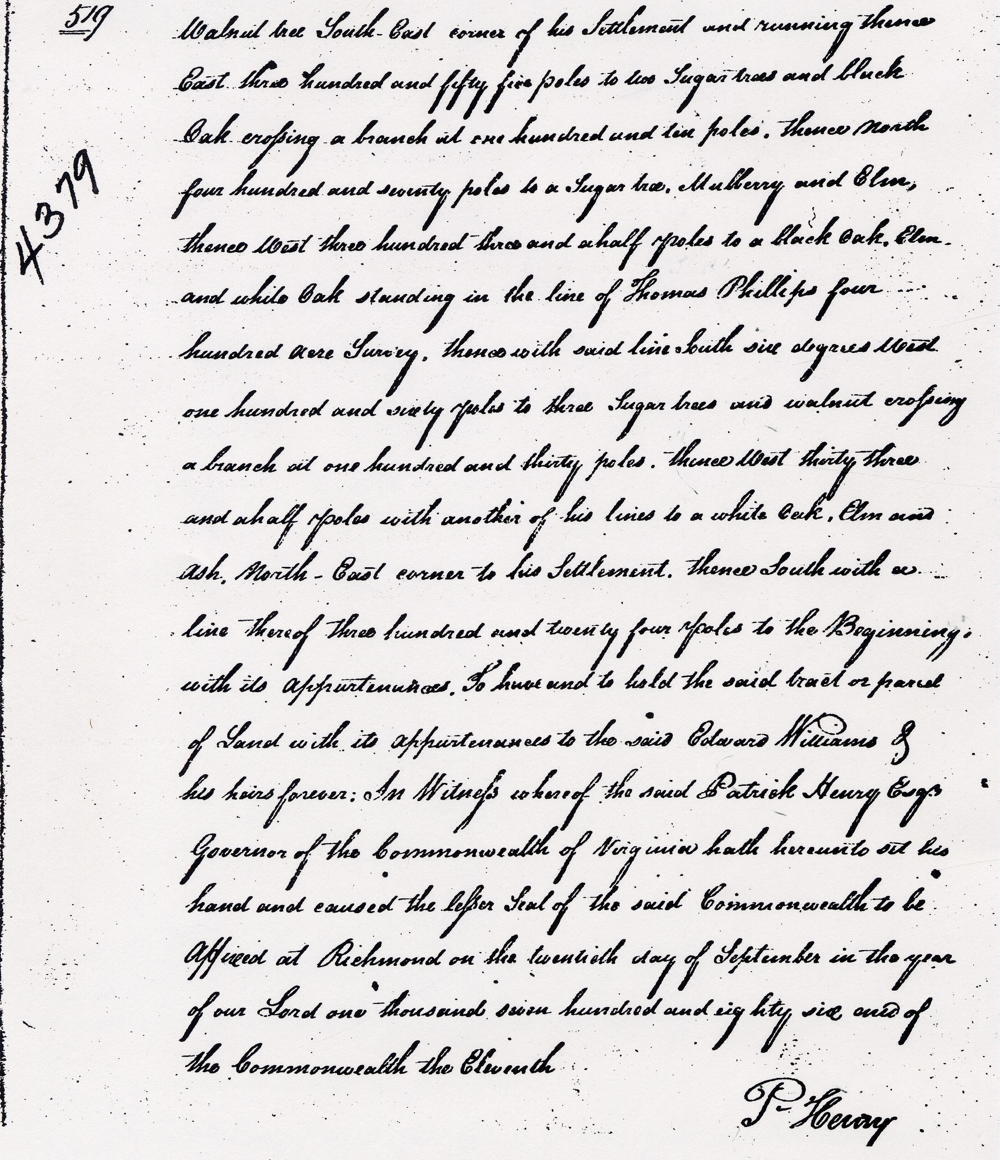 519
4379
Walnut tree South-East corner of his Settlement and running thence
East three hundred and fifty five poles to two Sugar trees and black
Oak crossing a branch at one hundred and ten poles. thence North
four hundred and seventy poles to a Sugar tree, Mulberry and Elm,
thence West three hundred three and a half poles to a black Oak, Elm
and white Oak standing in the line of Thomas Phillips four
hundred acre Survey, thence with said line South six degrees West
one hundred and sixty poles to three Sugar trees and walnut crossing
a branch at one hundred and thirty poles. thence West thirty three
and a half poles with another of his lines to a white Oak, Elm and
Ash, North-East corner to his Settlement. thence South with a
line thereof three hundred and twenty four poles to the Beginning,
with its appurtenances. To have and to hold the said tract or parcel
of Land with its appurtenances to the said Edward Williams &
his heirs forever: In Witness whereof the said Patrick Henry Esqr
Governor of the Commonwealth of Virginia hath hereunto set his
hand and caused the lesser Seal of the said Commonwealth to be
Affixed at Richmond on the twentieth day of September in the year
of our Lord one thousand seven hundred and eighty six and of
the Commonwealth the Eleventh
P. Henry